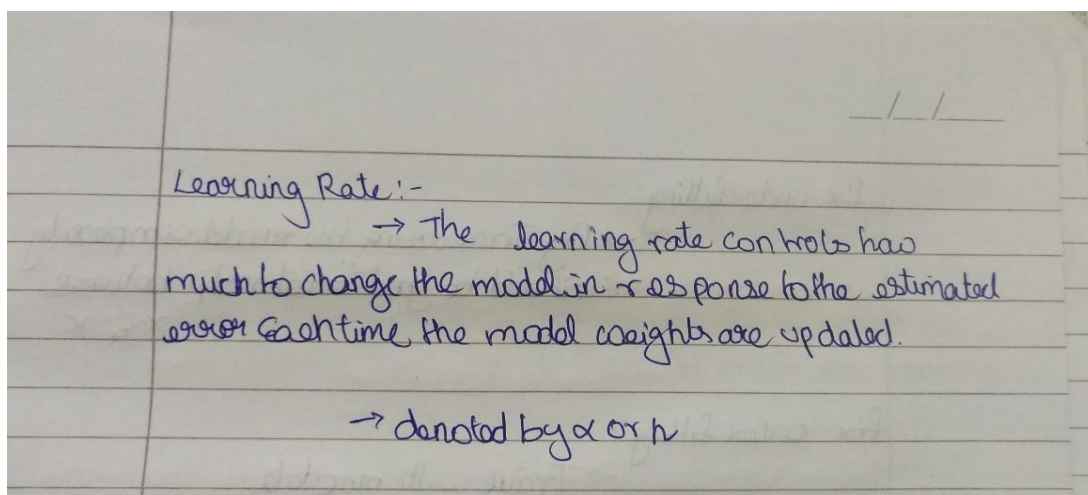 _/_/_
Learning Rate:-
→ The learning rate controls how
much to change the model in response to the estimated
error Each time the model weights are updated.
→ denoted by α or η